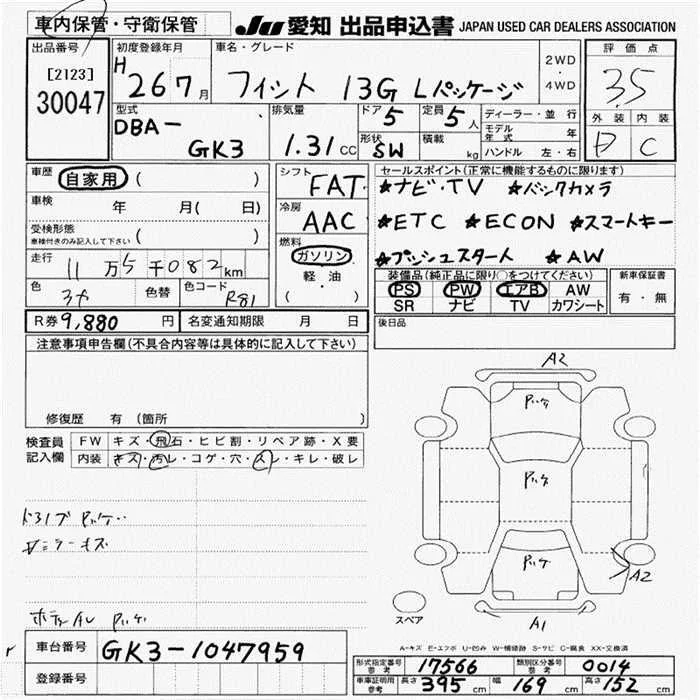 車内保管・守衛保管
JU 愛知 出品申込書 JAPAN USED CAR DEALERS ASSOCIATION
出品番号
[2123]
30047
初度登録年月
H 26 7月
車名・グレード
フィット 13G Lパッケージ
2WD
・
4WD
評価点
3.5
外装 内装
D C
型式
DBA-
GK3
排気量
1.31cc
ドア 5
定員 5人
形状 SW
積載 kg
ディーラー・並行
モデル年式 年
ハンドル 左・右
車歴 自家用 ( )
車検 年 月( 日)
受検形態
車検付きのみ記入して下さい ( )
走行 11万5千082km
色 色替 色コード R81
シフト FAT
冷房 AAC
燃料
ガソリン
軽・油
( )
セールスポイント(正常に機能するものに限ります)
★ナビ・TV ★バックカメラ
★ETC ★ECON ★スマートキー
★プッシュスタート ★AW
装備品(純正品に限り○をつけてください)
PS PW エアB AW
SR ナビ TV カワシート
新車保証書
有・無
R券 9,880 円
名変通知期限 月 日
後日品
注意事項申告欄(不具合内容等は具体的に記入して下さい)
修復歴 有 (箇所 )
検査員記入欄
FW キズ・飛石・ヒビ割・リペア跡・X要
内装 キズ・汚レ・コゲ・穴・スレ・キレ・破レ
A2
A2
A1
スペア
A-キズ E-エクボ U-凹み W-補修跡 S-サビ C-腐食 XX-交換済
車台番号 GK3-1047959
登録番号
形式指定番号 参考 17566
類別区分番号 参考 0014
車庫証明用 参考 長さ 395cm 幅 169cm 高さ 152cm